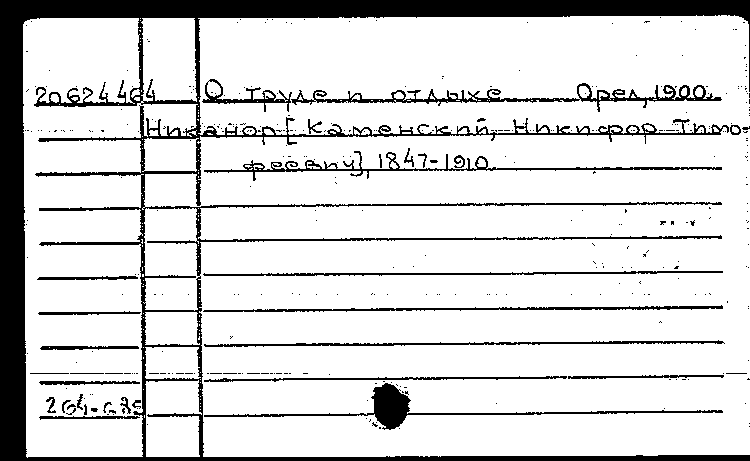 20624464 О труде и отдыхе Орел, 1900.
Никанор [Каменский, Никифор Тимо-
феевич], 1847-1910.
264-685